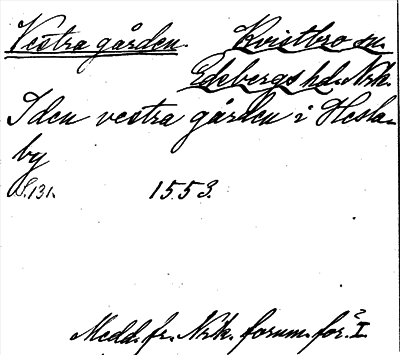 Vestra gården. Kvistbro sn.
Edebergs hd. Nrk.
I den vestra gården i Hesla-
by
S. 131. 1553.
Medd. fr. Nrk. fornm. för. I